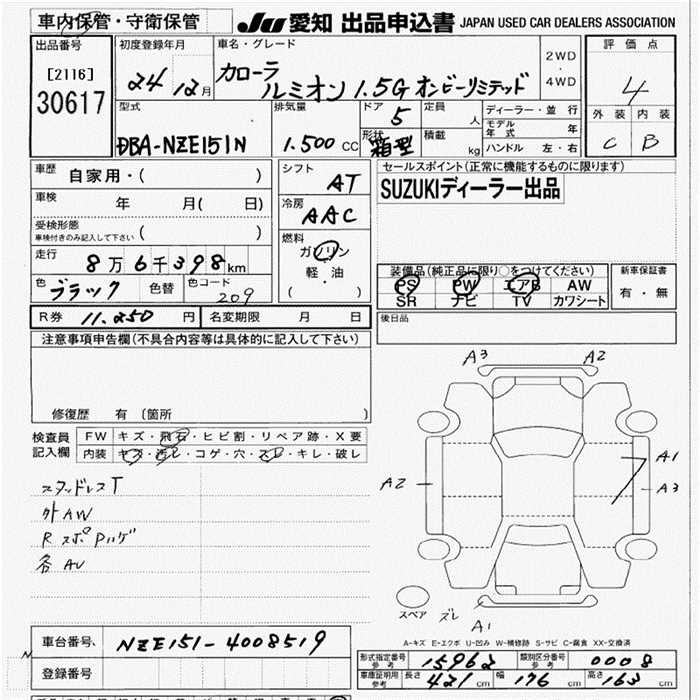 車内保管・守衛保管 JU 愛知 出品申込書 JAPAN USED CAR DEALERS ASSOCIATION
出品番号 初度登録年月 車名・グレード 評価点
[2116] 24 12月 カローラ 2WD・4WD 4
30617 ルミオン 1.5G オンビーリミテッド
型式 排気量 ドア 5 定員 人 ディーラー・並行 外装 内装
DBA-NZE151N 1.500 CC 形状 箱型 積載 kg モデル年式 年 C B
ハンドル 左・右
車歴 自家用・( ) シフト AT セールスポイント(正常に機能するものに限ります)
車検 年 月( 日) 冷房 AAC SUZUKIディーラー出品
受検形態 ( )
車検付きのみ記入して下さい
燃料 ガソリン・軽油 ( )
走行 8万6千398km 装備品(純正品に限り○をつけてください) 新車保証書
色 ブラック 色替 色コード 209 PS PW エアB AW 有・無
SR ナビ TV カワシート
R券 11.250 円 名変期限 月 日 後日品
注意事項申告欄(不具合内容等は具体的に記入して下さい)
A3 A2
修復歴 有 (箇所 )
検査員 FW キズ・飛石・ヒビ割・リペア跡・X要
記入欄 内装 キズ・汚レ・コゲ・穴・スレ・キレ・破レ
A2 A1
A3
スタッドレスT
外AW
R スポ
各AU
スペア ズレ A1
A-キズ E-エクボ U-凹み W-補修跡 S-サビ C-腐食 XX-交換済
車台番号 NZE151-4008519
形式指定番号 参考 15962 類別区分番号 参考 0008
登録番号 車庫証明用 参考 長さ 421cm 幅 176cm 高さ 163cm